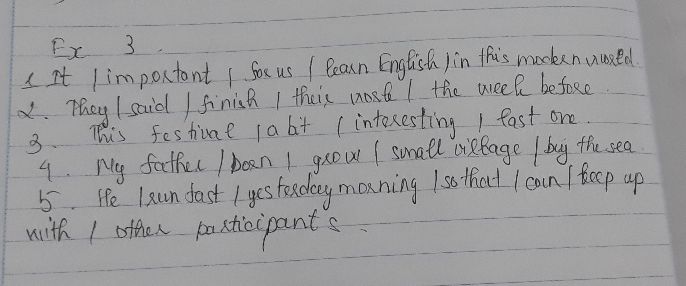 Ex 3.
1. It / important / for us / learn English / in this modern world.
2. They / said / finish / their work / the week before.
3. This festival / a bit / interesting / last one.
4. My father / born / grow / small village / by the sea
5. He / run fast / yesterday morning / so that / can / keep up
with / other participants.